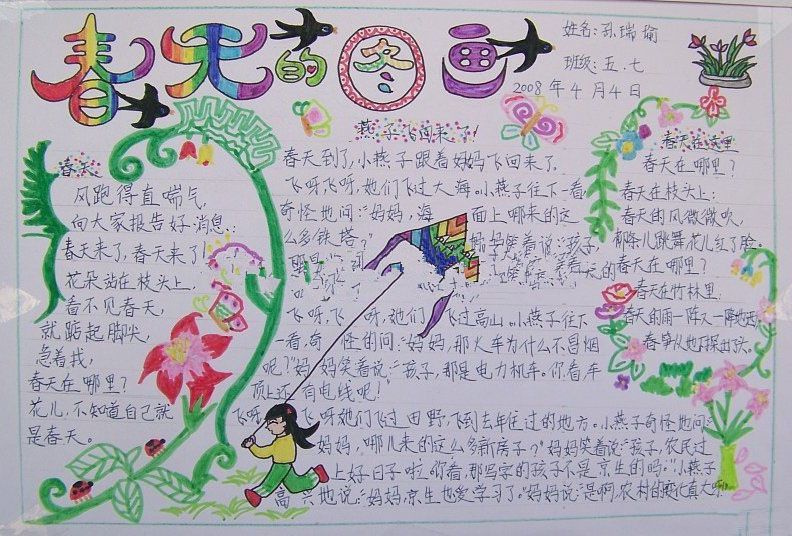 春天的图画
姓名:孙瑞瑜
班级:五.七
2008年4月4日
春天
风跑得直喘气,
向大家报告好消息:
春天来了,春天来了!
花朵站在枝头上,
看不见春天,
就踮起脚尖,
急着找,
春天在哪里?
花儿,不知道自己就
是春天。
燕子飞回来了!
春天到了,小燕子跟着妈妈飞回来了。
飞呀飞呀,她们飞过大海。小燕子往下一看,
奇怪地问:“妈妈,海面上哪来的这
么多铁塔?”妈妈笑着说:“孩子,
飞呀,飞呀,她们飞过高山。小燕子往下
看,奇怪的问:“妈妈,那火车为什么不冒烟
呢?”妈妈笑着说:“孩子,那是电力机车。你看,车
顶上还有电线呢!”
飞呀飞呀她们飞过田野,飞到去年住过的地方。小燕子奇怪地问:“
妈妈,哪儿来的这么多新房子?”妈妈笑着说:“孩子,农民过
上好日子啦。你看,那写字的孩子不是京生的吗。”小燕子
高兴地说:“妈妈,京生也爱学习了。”妈妈说:“是啊,农村的变化真大
春天在这里
春天在哪里?
春天在枝头上:
春天的风微微吹,
柳条儿跳舞花儿红了脸。
春天在哪里?
春天在竹林里:
春天的雨一阵又一阵地
春笋从地下探出了头。